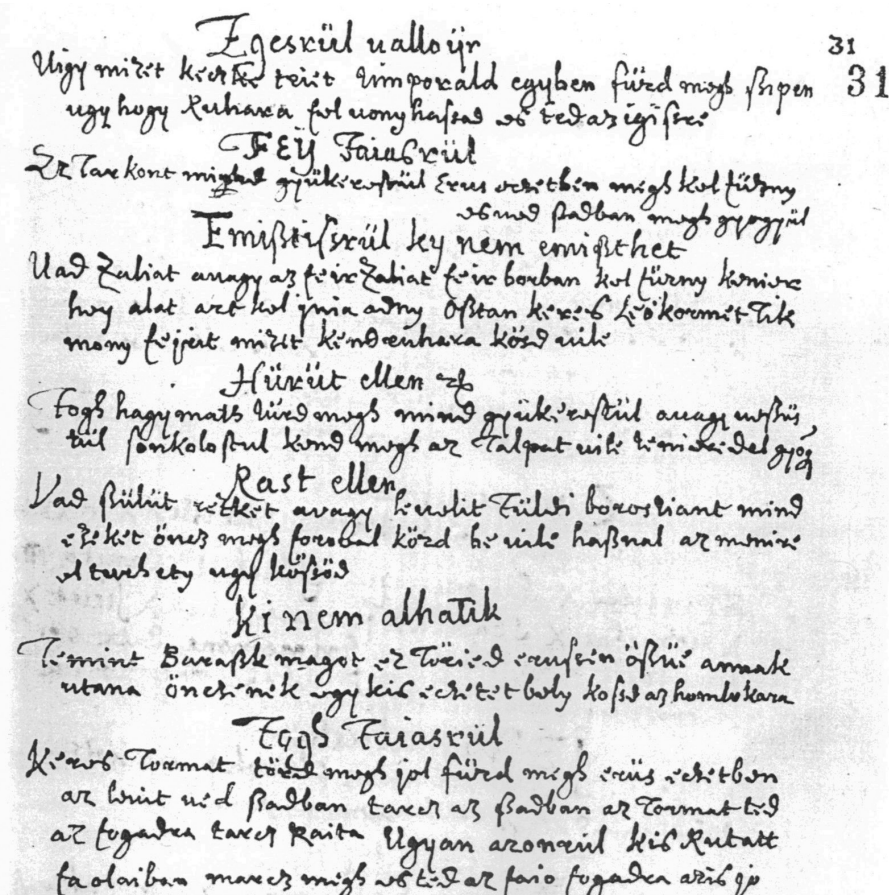 Egesrül ualloÿr
31
31
Uigy mizet kechke teiet timporald egyben fürd megh szipen
ugy hogy Ruhara fel uonyhassad es ted az igisre
FEŸ Faiasrül
Ez Tarkont gyükerestül Erus eczetben megh kel fűzny
es ued szadban megh gyogyül
Emisztisrül ky nem emiszthet
Uad Zaliat auagy az feir Zaliat feir borban kel fűzny kenier
hey alat azt kel innia adny Osztan keres Tik
mony feijrit mizet kenderuhara kösd uile
Hürüt ellen
Fogh hagymath türd megh mind gyükerestül auagy
tül sonkolostul kend megh az Talpat uile
Rast ellen
Vad szülüt retket auagy leuelit Füldi borostiant mind
ezeket öncz megh forobal körd be uile hasznal az menire
el turhety ugy kössöd
Ki nem alhatik
Temint Baraszk magot ez Töried erussen öszue annak
utana öncz enek egy kis eczetet bely kossd az homlokara
Fogh Faiasrül
Keres Tormat megh jol fürd megh erüs eczetben
az leuit ued szadban tarcz az szadban az Tormat ted
az fogadra tarcz Raita Ugyan azonrul kis Rutatt
fa olaiban marcz megh es ted az faio fogadra azis jo